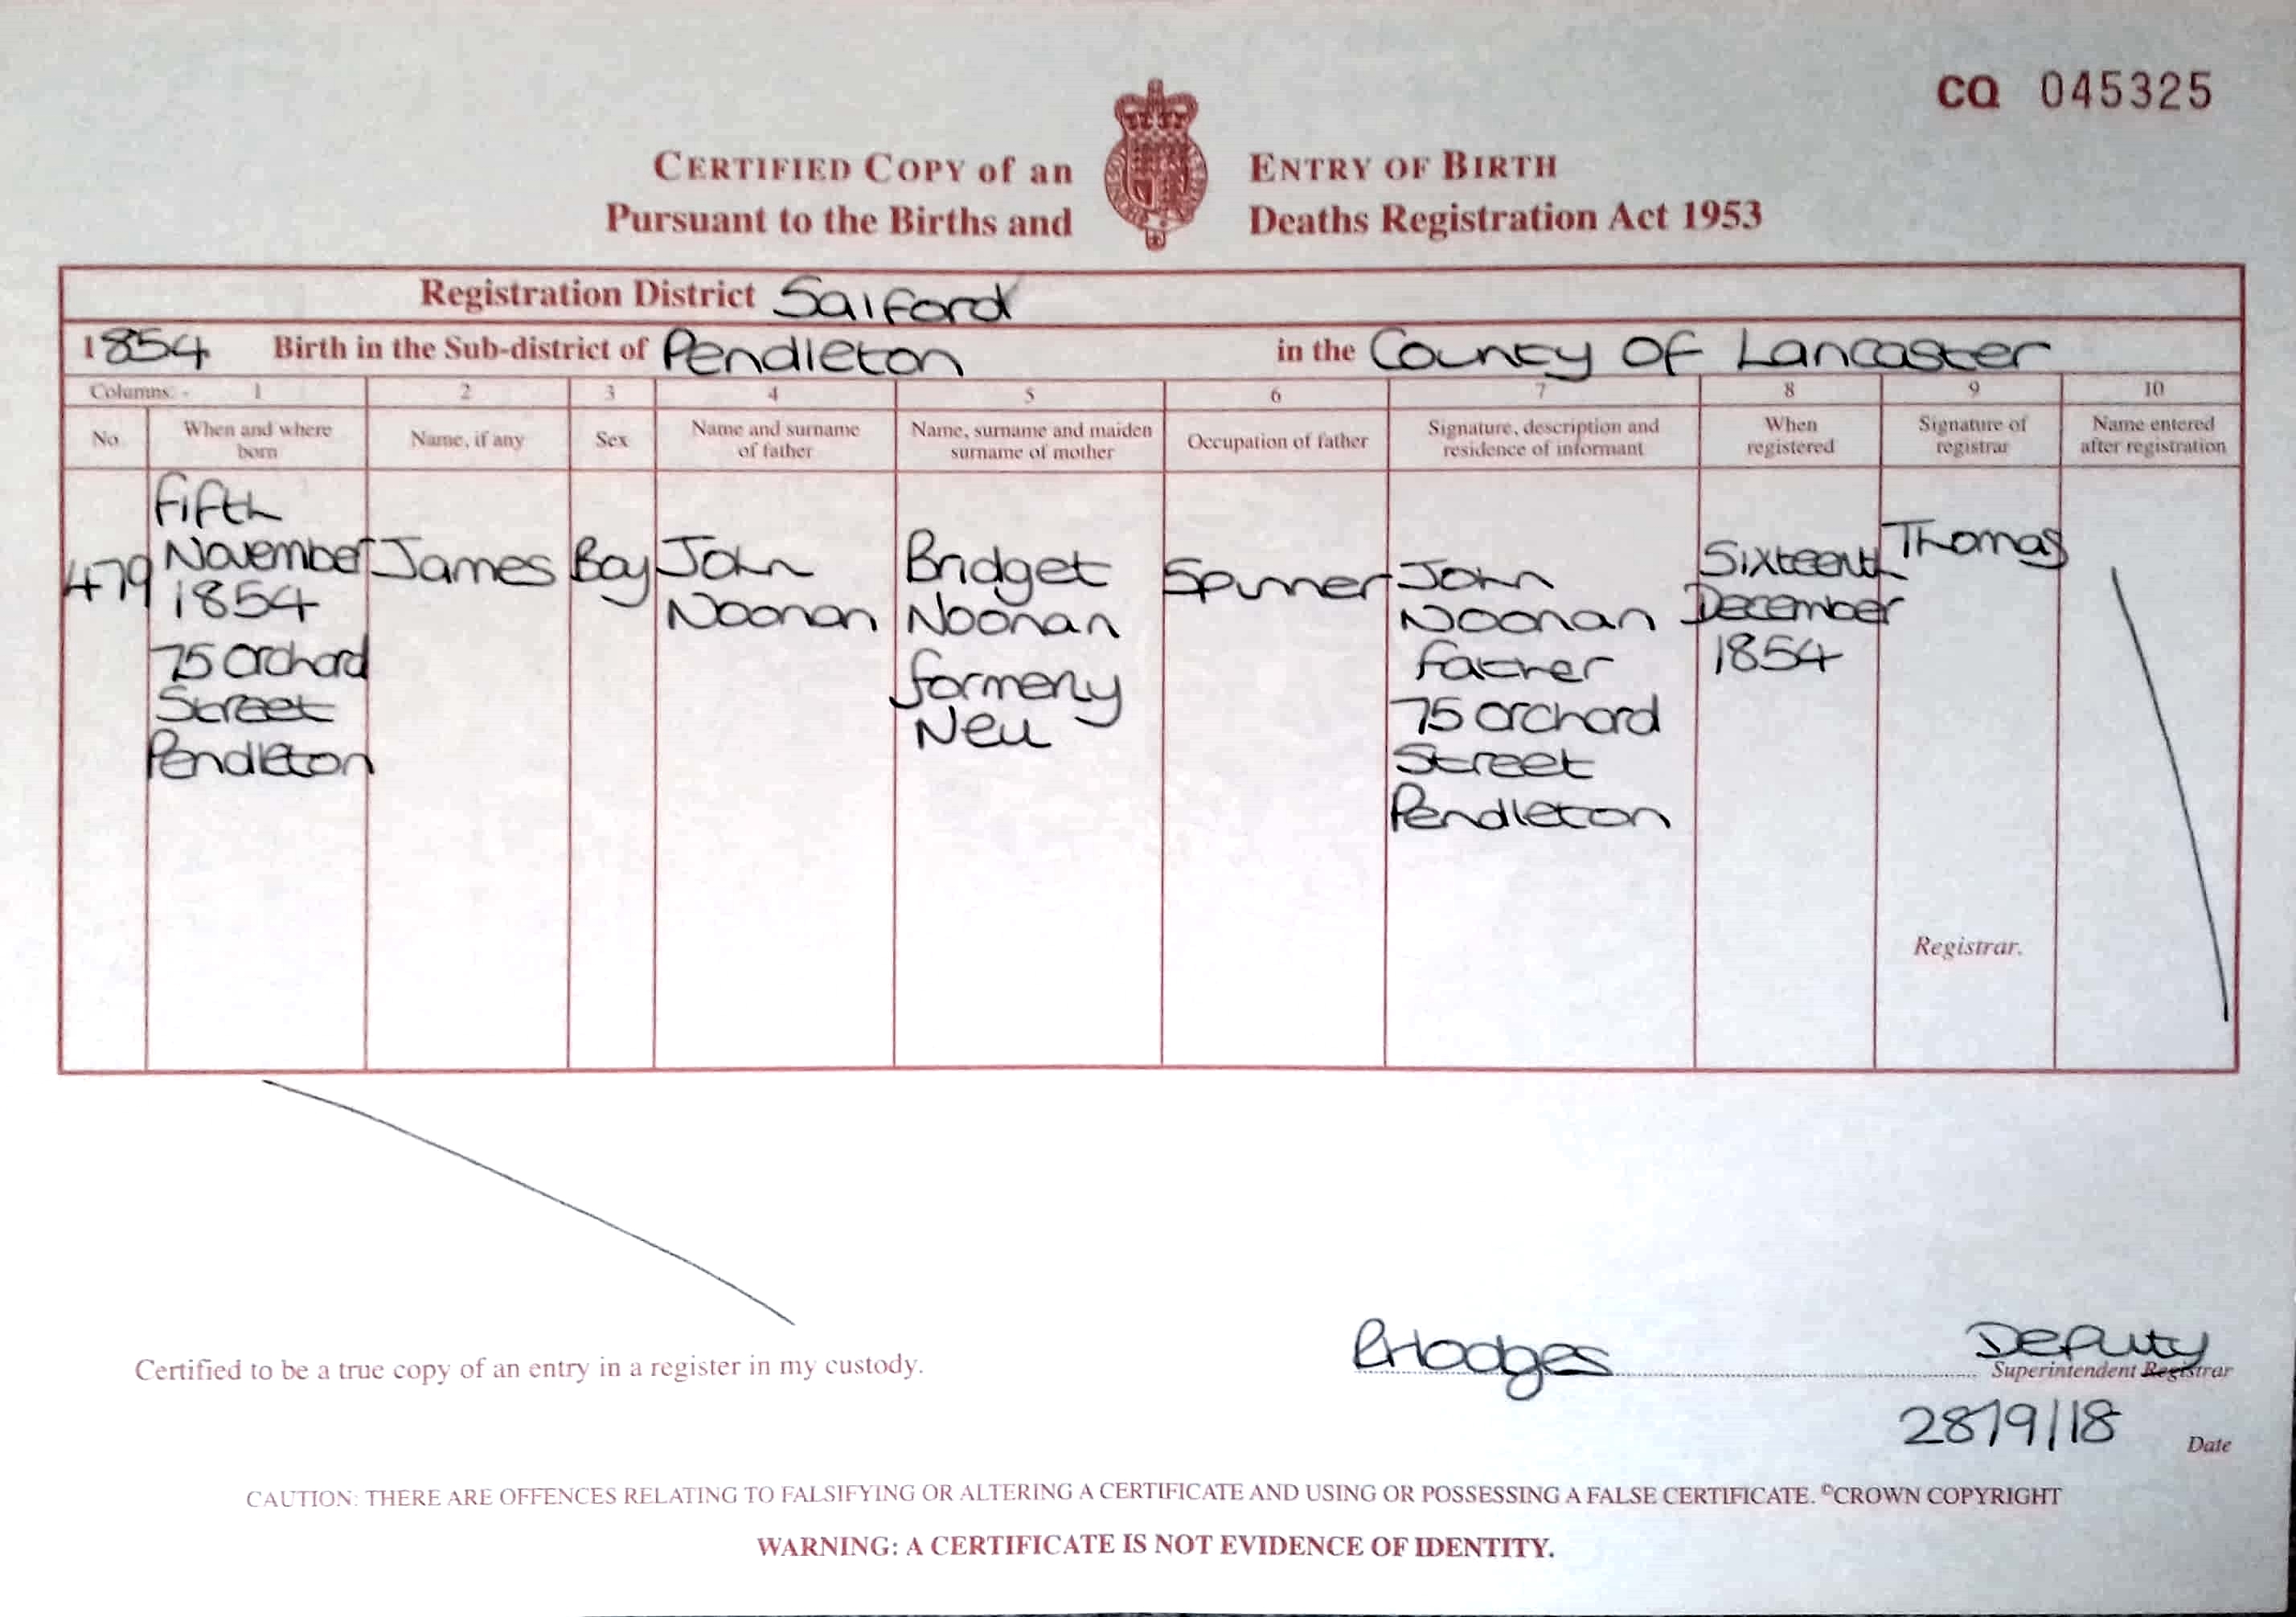 CQ 045325
CERTIFIED COPY of an ENTRY OF BIRTH
Pursuant to the Births and Deaths Registration Act 1953
Registration District Salford
1854 Birth in the Sub-district of Pendleton in the County of Lancaster
Columns:- 1 2 3 4 5 6 7 8 9 10
No.
When and where
born
Name, if any
Sex
Name and surname
of father
Name, surname and maiden
surname of mother
Occupation of father
Signature, description and
residence of informant
When
registered
Signature of
registrar
Name entered
after registration
479
Fifth
November
1854
75 Orchard
Street
Pendleton
James
Boy
John
Noonan
Bridget
Noonan
formerly
Neil
Spinner
John
Noonan
Father
75 Orchard
Street
Pendleton
Sixteenth
December
1854
Thomas
Registrar.
Certified to be a true copy of an entry in a register in my custody.
BHodges
Deputy
Superintendent Registrar
28/9/18
Date
CAUTION: THERE ARE OFFENCES RELATING TO FALSIFYING OR ALTERING A CERTIFICATE AND USING OR POSSESSING A FALSE CERTIFICATE. ©CROWN COPYRIGHT
WARNING: A CERTIFICATE IS NOT EVIDENCE OF IDENTITY.